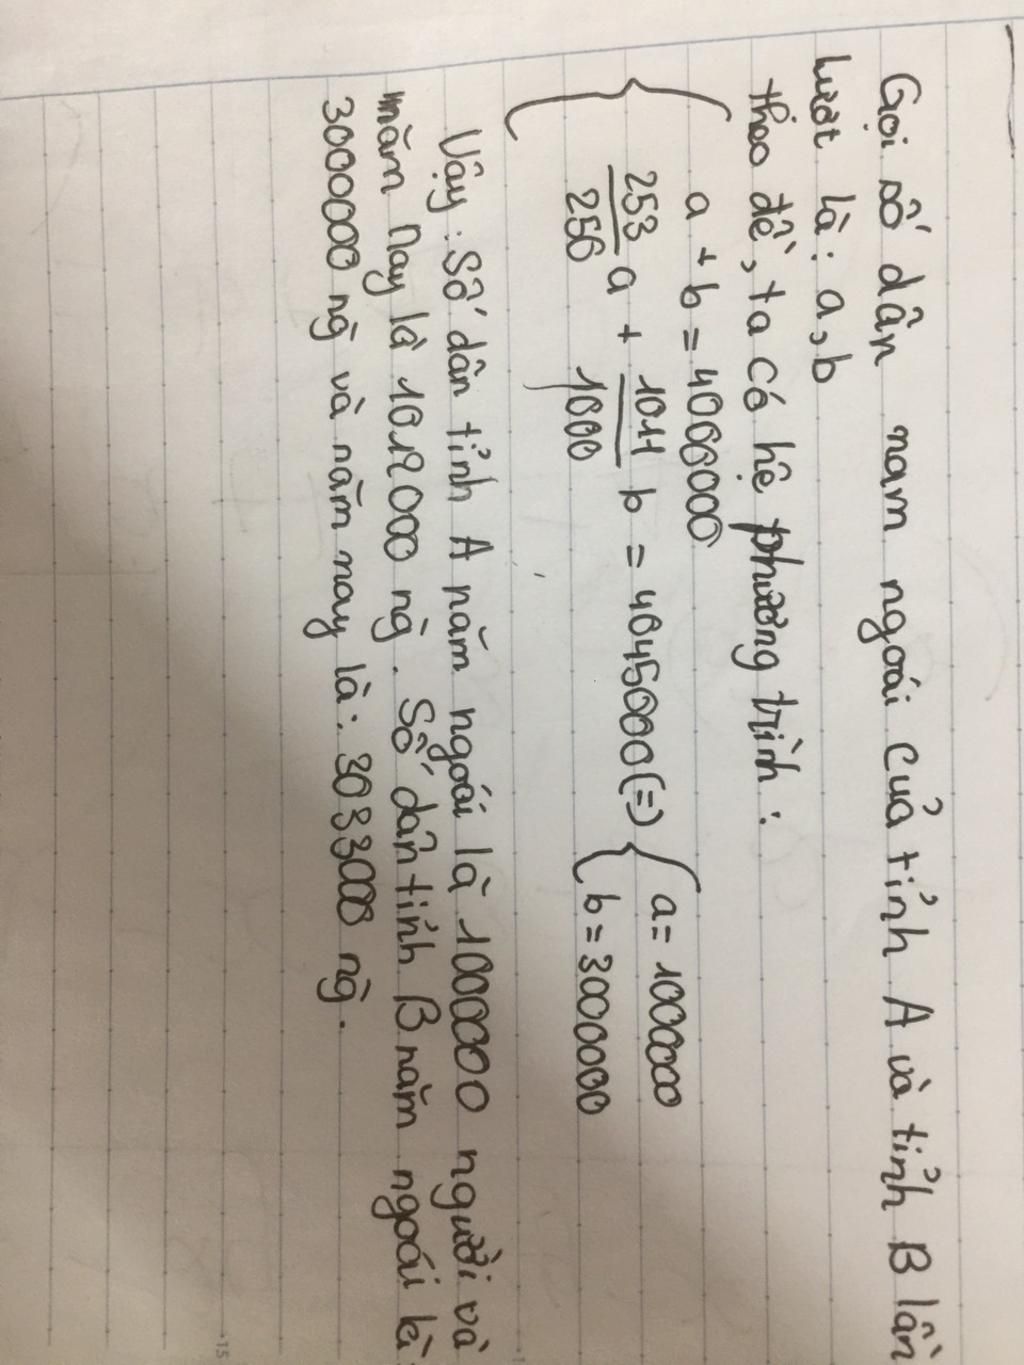 Gọi số dân nam ngoái của tỉnh A và tỉnh B lần
lượt là: a, b
theo đề, ta có hệ phương trình:
a + b = 4000000
253/256 a + 1011/1000 b = 4045000 (=) { a = 1000000
b = 3000000
Vậy: Số dân tỉnh A năm ngoái là 1000000 người và
năm nay là 1012000 ng. Số dân tỉnh B năm ngoái là
3000000 ng và năm nay là: 3033000 ng.
15